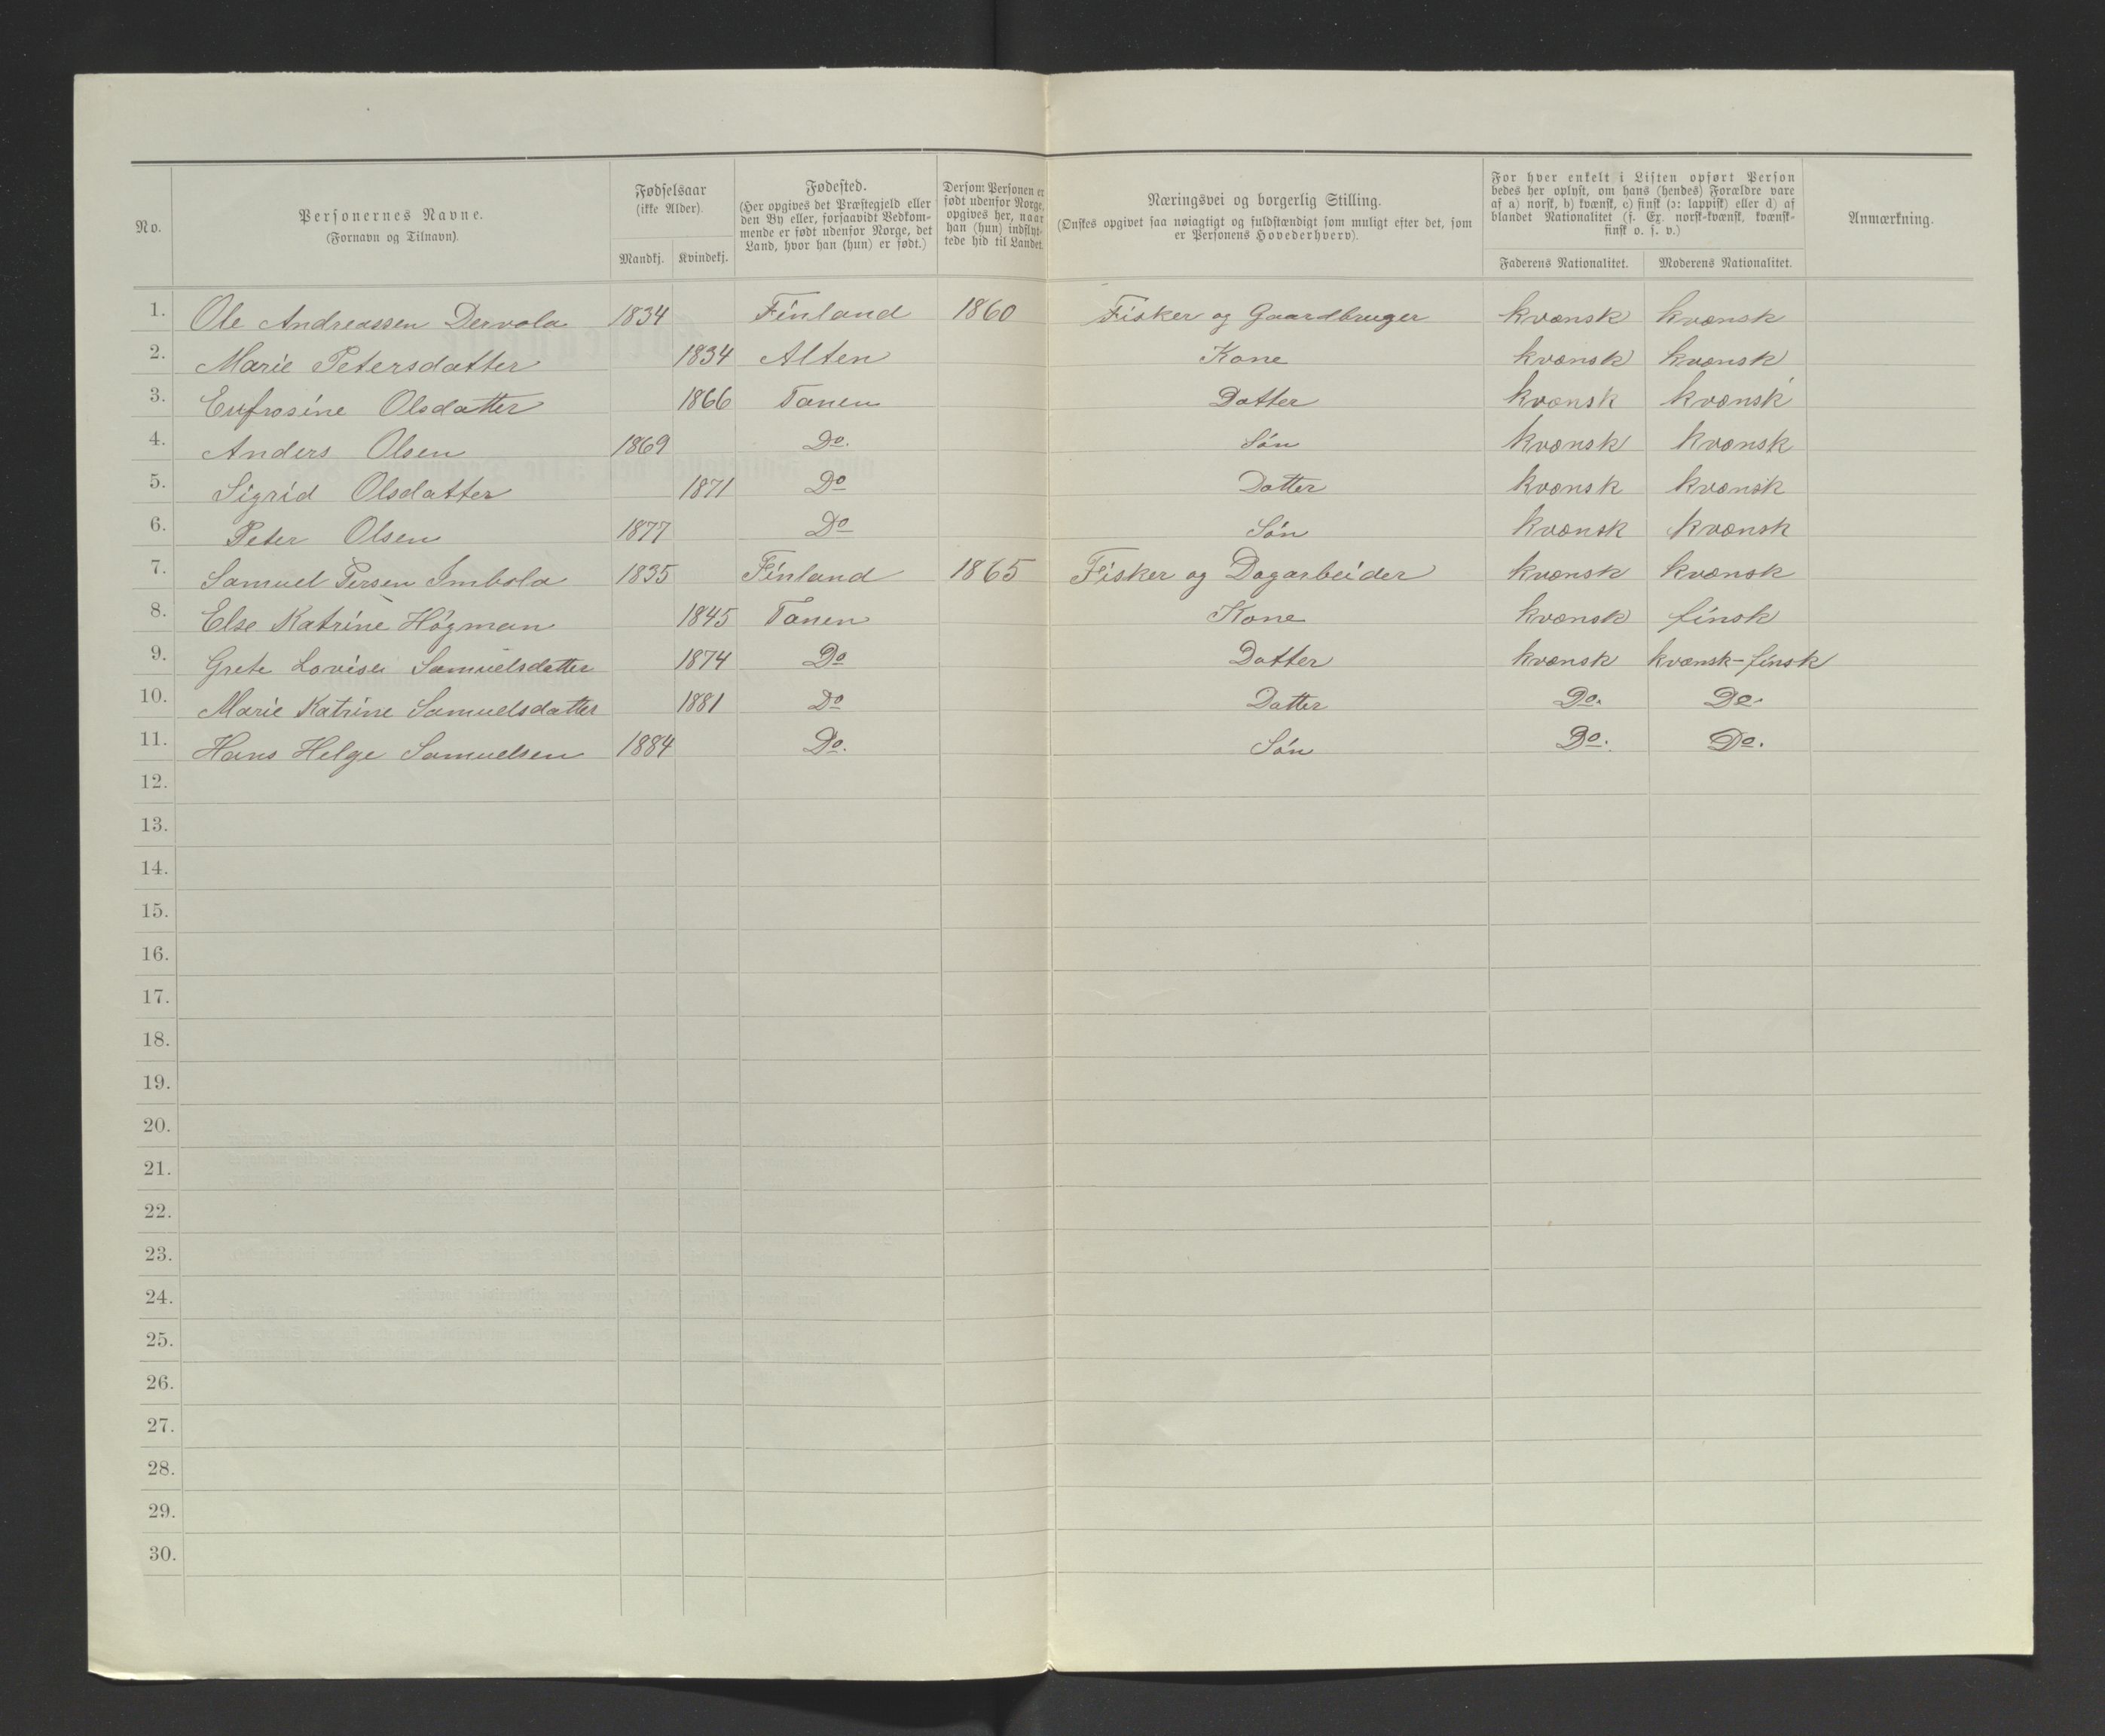 No.
Personernes Navne.
(Fornavn og Tilnavn).
Fødselsaar
(ikke Alder).
Mandkj. Kvindekj.
Fødested.
(Her opgives det Præstegjeld eller
den By eller, forsaavidt Vedkom-
mende er født udenfor Norge, det
Land, hvor han (hun) er født.)
Dersom Personen er
født udenfor Norge,
opgives her, naar
han (hun) indflyt-
tede hid til Landet.
Næringsvei og borgerlig Stilling.
(Ønskes opgivet saa nøiagtigt og fuldstændigt som muligt efter det, som
er Personens Hovederhverv).
For hver enkelt i Listen opført Person
bedes her oplyst, om hans (hendes) Forældre vare
af a) norsk, b) kvænsk, c) finsk (ɔ: lappisk) eller d) af
blandet Nationalitet (f. Ex. norsk-kvænsk, kvænsk-
finsk o. s. v.)
Faderens Nationalitet. Moderens Nationalitet.
Anmærkning.
1. Ole Andreassen Dervola 1834 Finland 1860 Fisker og Gaardbruger kvænsk kvænsk
2. Marie Petersdatter 1834 Alten Kone kvænsk kvænsk
3. Eufrosine Olsdatter 1866 Tanen Datter kvænsk kvænsk
4. Anders Olsen 1869 Do. Søn kvænsk kvænsk
5. Sigrid Olsdatter 1871 Do Datter kvænsk kvænsk
6. Peter Olsen 1877 Do Søn kvænsk kvænsk
7. Samuel Persen Imbola 1835 Finland 1865 Fisker og Dagarbeider kvænsk kvænsk
8. Else Katrine Högman 1845 Tanen Kone kvænsk finsk
9. Grete Lovise Samuelsdatter 1874 Do Datter kvænsk kvænsk-finsk
10. Marie Katrine Samuelsdatter 1881 Do Datter Do. Do.
11. Hans Helge Samuelsen 1884 Do. Søn Do. Do.
12.
13.
14.
15.
16.
17.
18.
19.
20.
21.
22.
23.
24.
25.
26.
27.
28.
29.
30.